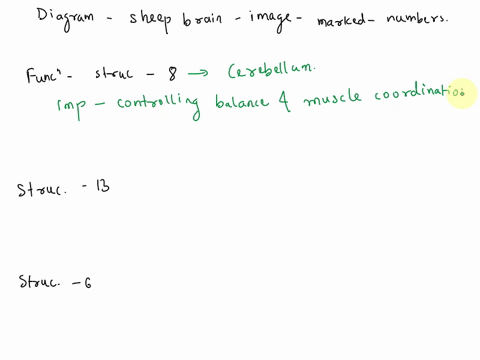 Diagram - sheep brain - image - marked - numbers.
Funcⁿ - struc - 8 → Cerebellum.
Imp - controlling balance & muscle coordination.
Struc. - 13
Struc. - 6